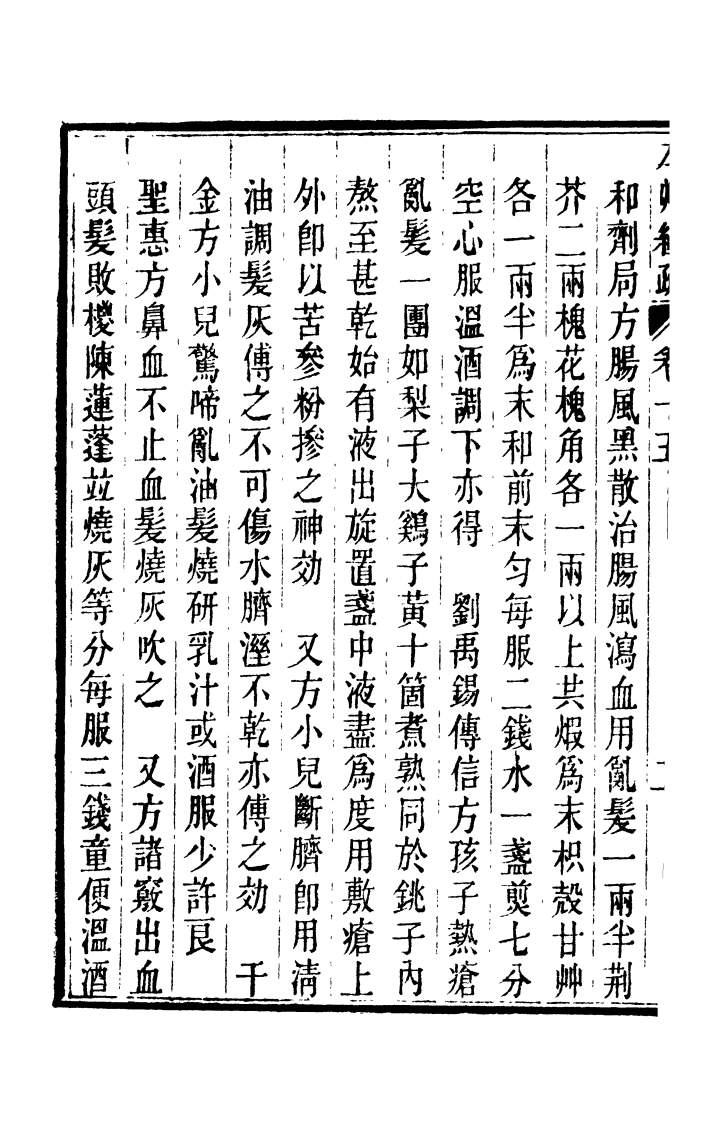 本草經疏 卷十五 二
和劑局方腸風黑散治腸風瀉血用亂髮一兩半荆
芥二兩槐花槐角各一兩以上共煆爲末枳殼甘艸
各一兩半爲末和前末勻每服二錢水一盞煎七分
空心服溫酒調下亦得　劉禹錫傳信方孩子熱瘡
亂髮一團如梨子大鷄子黃十箇煮熟同於銚子內
熬至甚乾始有液出旋置盞中液盡爲度用敷瘡上
外卽以苦參粉摻之神効　又方小兒斷臍卽用清
油調髮灰傅之不可傷水臍溼不乾亦傅之効　千
金方小兒驚啼亂油髮燒研乳汁或酒服少許良
聖惠方鼻血不止血髮燒灰吹之　又方諸竅出血
頭髮敗椶陳蓮蓬竝燒灰等分每服三錢童便溫酒